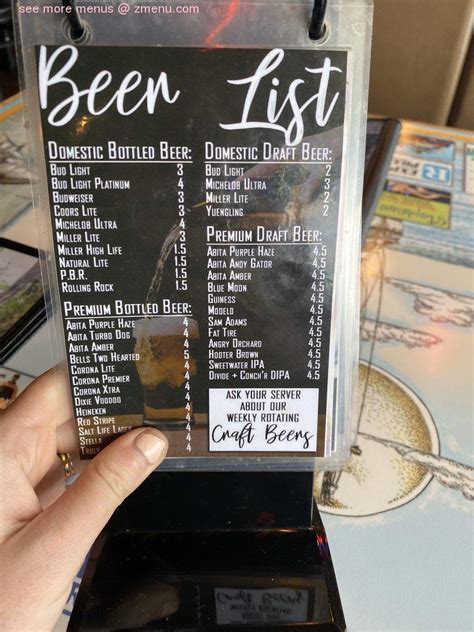 see more menus @ zmenu.com
Beer List
DOMESTIC BOTTLED BEER:
BUD LIGHT 3
BUD LIGHT PLATINUM 4
BUDWEISER 3
COORS LITE 3
MICHELOB ULTRA 4
MILLER LITE 3
MILLER HIGH LIFE 1.5
NATURAL LITE 1.5
P.B.R. 1.5
ROLLING ROCK 1.5
PREMIUM BOTTLED BEER:
ABITA PURPLE HAZE 4
ABITA TURBO DOG 4
ABITA AMBER 4
BELLS TWO HEARTED 5
CORONA LITE 4
CORONA PREMIER 4
CORONA XTRA 4
DIXIE VOODOO 4
HEINEKEN 4
RED STRIPE 4
SALT LIFE LAGER 4
STELLA 4
TRULY 4
DOMESTIC DRAFT BEER:
BUD LIGHT 2
MICHELOB ULTRA 3
MILLER LITE 2
YUENGLING 2
PREMIUM DRAFT BEER:
ABITA PURPLE HAZE 4.5
ABITA ANDY GATOR 4.5
ABITA AMBER 4.5
BLUE MOON 4.5
GUINESS 4.5
MODELO 4.5
SAM ADAMS 4.5
FAT TIRE 4.5
ANGRY ORCHARD 4.5
HOOTER BROWN 4.5
SWEETWATER IPA 4.5
DIVIDE + CONCH'R DIPA 4.5
ASK YOUR SERVER
ABOUT OUR
WEEKLY ROTATING
Craft Beers